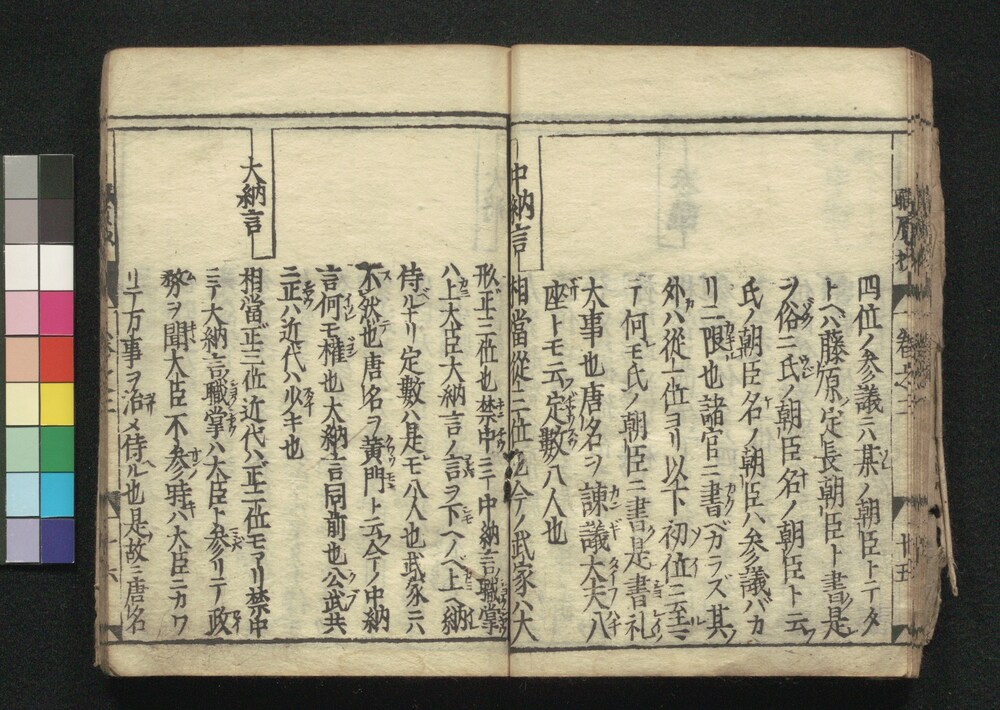 四位ノ参議ニハ某ノ朝臣トテタ
トヘバ藤原ノ定長朝臣ト書是
ヲ俗ニ氏ノ朝臣名ノ朝臣ト云
氏ノ朝臣名ノ朝臣ハ参議バカ
リニ限也諸官ニ書ベカラズ其
外ハ従一位ヨリ以下初位ニ至ニ
テ何モ氏ノ朝臣ニ書是書礼
大事也唐名ヲ諫議大夫八
座トモ云定數八人也
中納言
相當從三位也今ノ武家ハ大
形正三位也禁中ニテ中納言職掌
ハ上大臣大納言ノ言ヲ下ヘノベ上ヘ納
侍ルナリ定數ハ是モ八人也武家ニハ
不然也唐名ヲ黄門ト云今ノ中納
言何モ權也大納言同前也公武共
ニ正ハ近代ハ少キ也
大納言
相當正三位近代ハ正二位モアリ禁中
ニテ大納言職掌ハ大臣ト参リテ政
務ヲ聞大臣不参時ハ大臣ニカワ
リテ万事ヲ治メ侍ル也是故ニ唐名